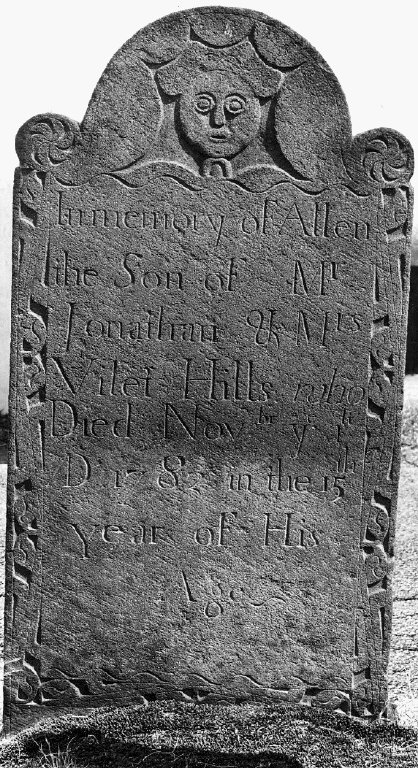 In memory of Allen
the Son of Mr
Jonathan & Mrs
Vilet Hills who
Died Novbr ye
D 1782 in the 15th
year of His
Age